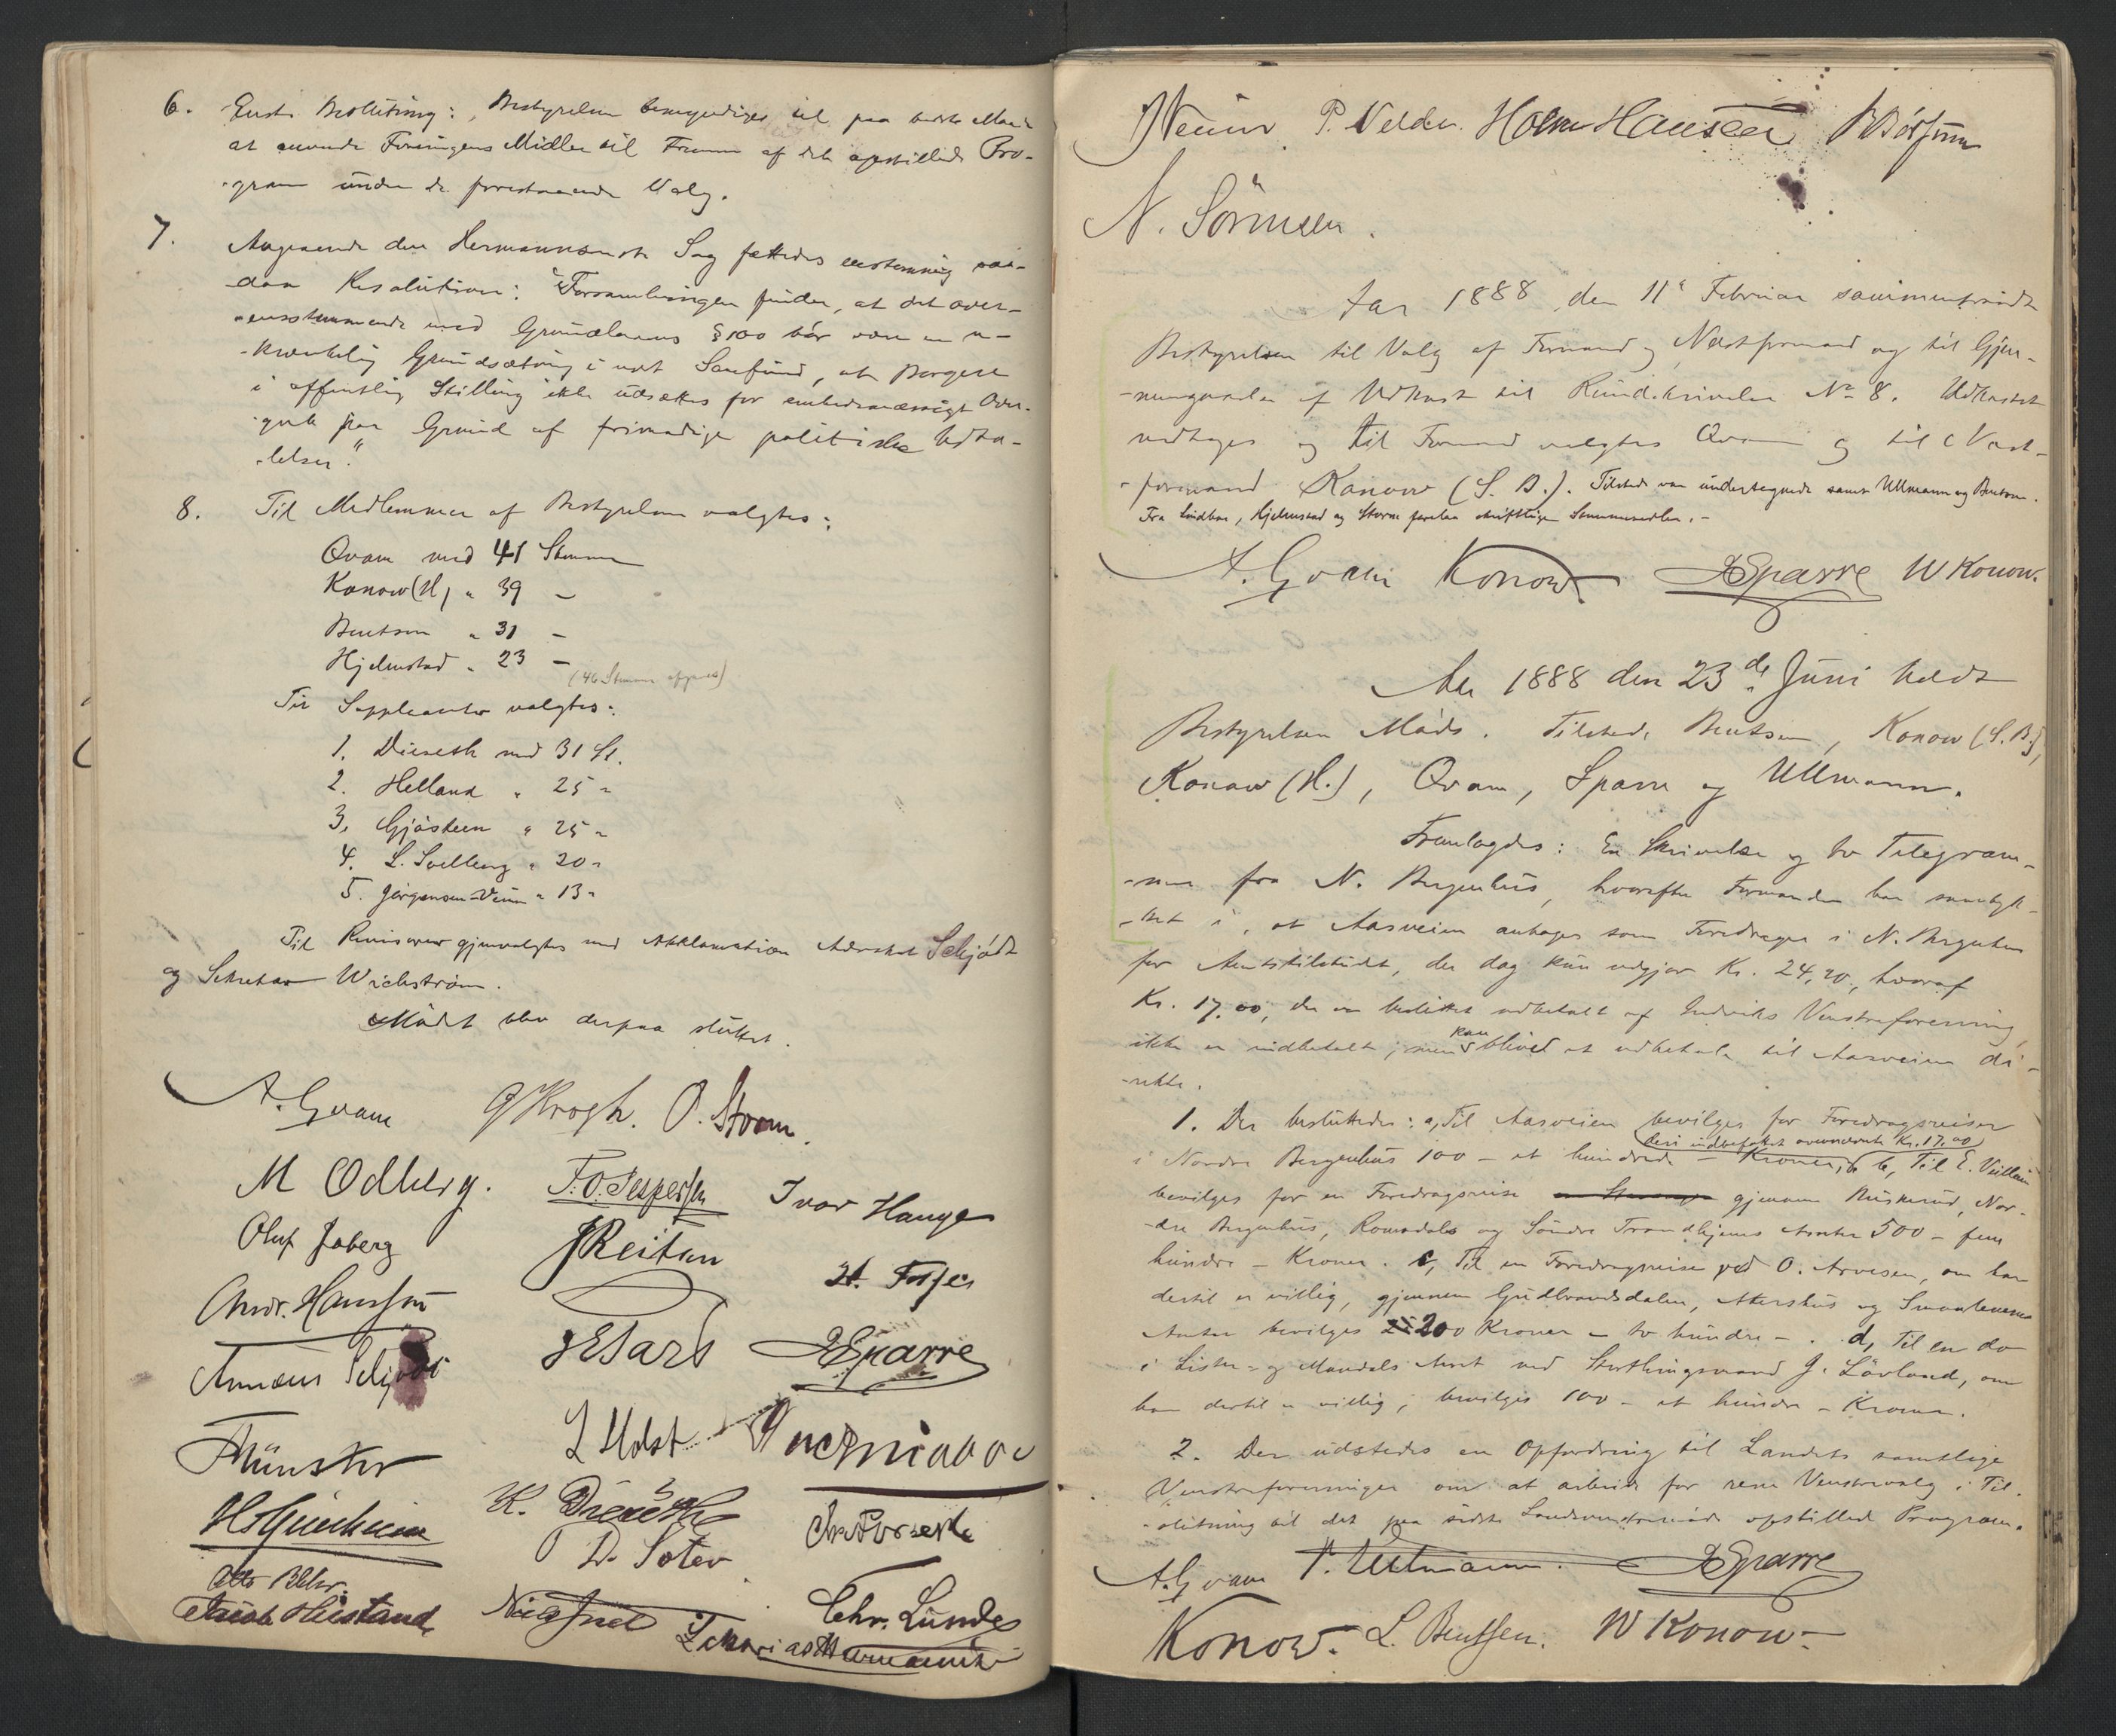 6. Enst. Beslutning: Bestyrelsen bemyndiges til paa bedste Maade
at anvende Foreningens Midler til Fremme af det opstillede Pro-
-gram under de forestaaende Valg.
7. Angaaende den Hermannsenske Sag fattedes enstemmig saa-
-dan Resolution: "Forsamlingen finder, at det over-
-ensstemmende med Grundlovens § 100 bør være en u-
-krænkelig Grundsætning i vort Samfund, at Borgere
i offentlig Stilling ikke udsættes for embedsmæssigt Over-
-greb paa Grund af frimodige politiske Udta-
-lelser."
8. Til Medlemmer af Bestyrelsen valgtes:
Qvam med 41 Stemmer
Konow (H) " 39 —
Bentsen " 31 —
Hjelmstad " 23 —
(46 Stemmer afgivet)
Til Suppleanter valgtes:
1. Dieseth med 31 St.
2. Helland " 25 "
3. Gjøsteen " 25 "
4. L. Soelberg " 20 "
5. Jørgensen-Veum " 13 "
Til Revisorer gjenvalgtes med Akklamation Advokat Schjødt
og Sekretær Wickstrøm.
Mødet blev derpaa sluttet.
A. Qvam G Krogh. O. Strøm.
M Odberg. F. O. Jespersen Ivar Hauge
Oluf Joberg J Reitan
Andr. Hansson
Annæus Schjødt J E Sars Sparre
Münster L Holst
K. Dieseth
D. Soten
Otto Blehr. Chr. Lunde
P. Velde. Holm Hansen
N. Sörensen.
Aar 1888 den 11te Februar sammentraadte
Bestyrelsen til Valg af Formand og Næstformand og til Gjen-
-nemgaaelse af Udkast til Rundskrivelse No 8. Udkastet
vedtoges og til Formand valgtes Qvam og til Næst-
-formand Konow (S. B.). Tilstede var undertegnede samt Ullmann og Bentsen.
Fra Lindboe, Hjelmstad og Storm forelaa skriftlige Stemmesedler. –
A. Qvam Konow. Sparre W Konow.
Aar 1888 den 23de Juni holdt
Bestyrelsen Møde. Tilstede Bentsen, Konow (S. B.),
Konow (H.), Qvam, Sparre og Ullmann.
Fremlagdes: En Skrivelse og to Telegram-
-mer fra N. Bergenhus, hvorefter Formanden har samtyk-
-ket i, at Aasveien antages som Foredrager i N. Bergenhus
for Amtstilskudt, der dog kun udgjør Kr. 24,20, hvoraf
Kr. 17,00, der er besluttet udbetalt af Indviks Venstreforening,
ikke er indbetalt, men kan blive at udbetale til Aasveien di-
-rekte.
1. Der besluttedes: a, Til Aasveien bevilges for Foredragsreiser
i Nordre Bergenhus 100 – et hundrede – Kroner, (deri indbefattet ovennævnte Kr. 17,00) b, Til E. Vullum
bevilges for en Foredragsreise gjennem Buskerud, Nor-
-dre Bergenhus, Romsdals og Søndre Trondhjems Amter 500 – fem
hundre – Kroner. c, Til en Foredragsreise ved O. Arvesen, om han
dertil er villig, gjennem Gudbrandsdalen, Akershus og Smaalenenes
Amter bevilges 200 Kroner – to hundre –. d, Til en do
i Lister- og Mandals Amt ved Storthingsmand J. Løvland, om
han dertil er villig, bevilges 100 – et hundre – Kroner.
2. Der udstedes en Opfordring til Landets samtlige
Venstreforeninger om at arbeide for rene Venstrevalg i Til-
-slutning til det paa sidste Landsvenstremøde opstillede Program.
A. Qvam V. Ullmann. Sparre
Konow. L. Bentsen. W Konow.